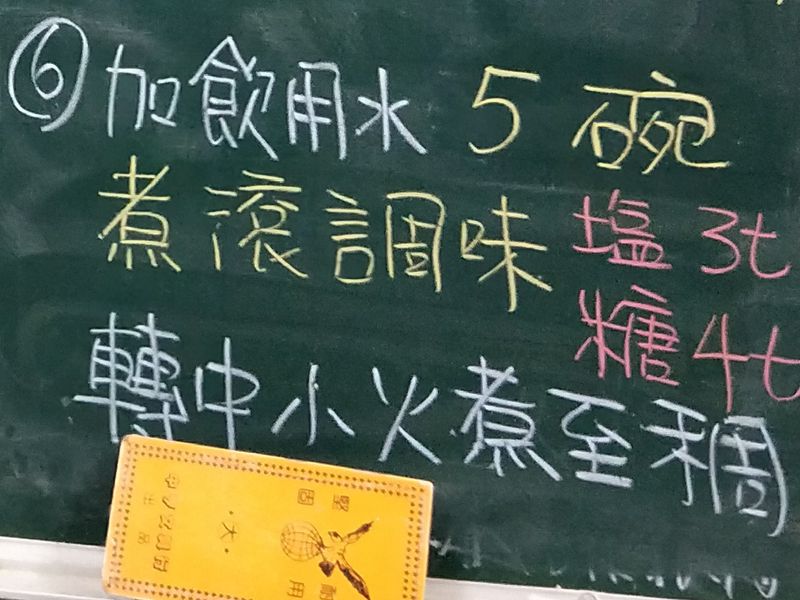 ⑥加飲用水 5 碗
煮滾調味 塩 3t
糖 4t
轉中小火煮至稠
堅固
耐用
大
出品